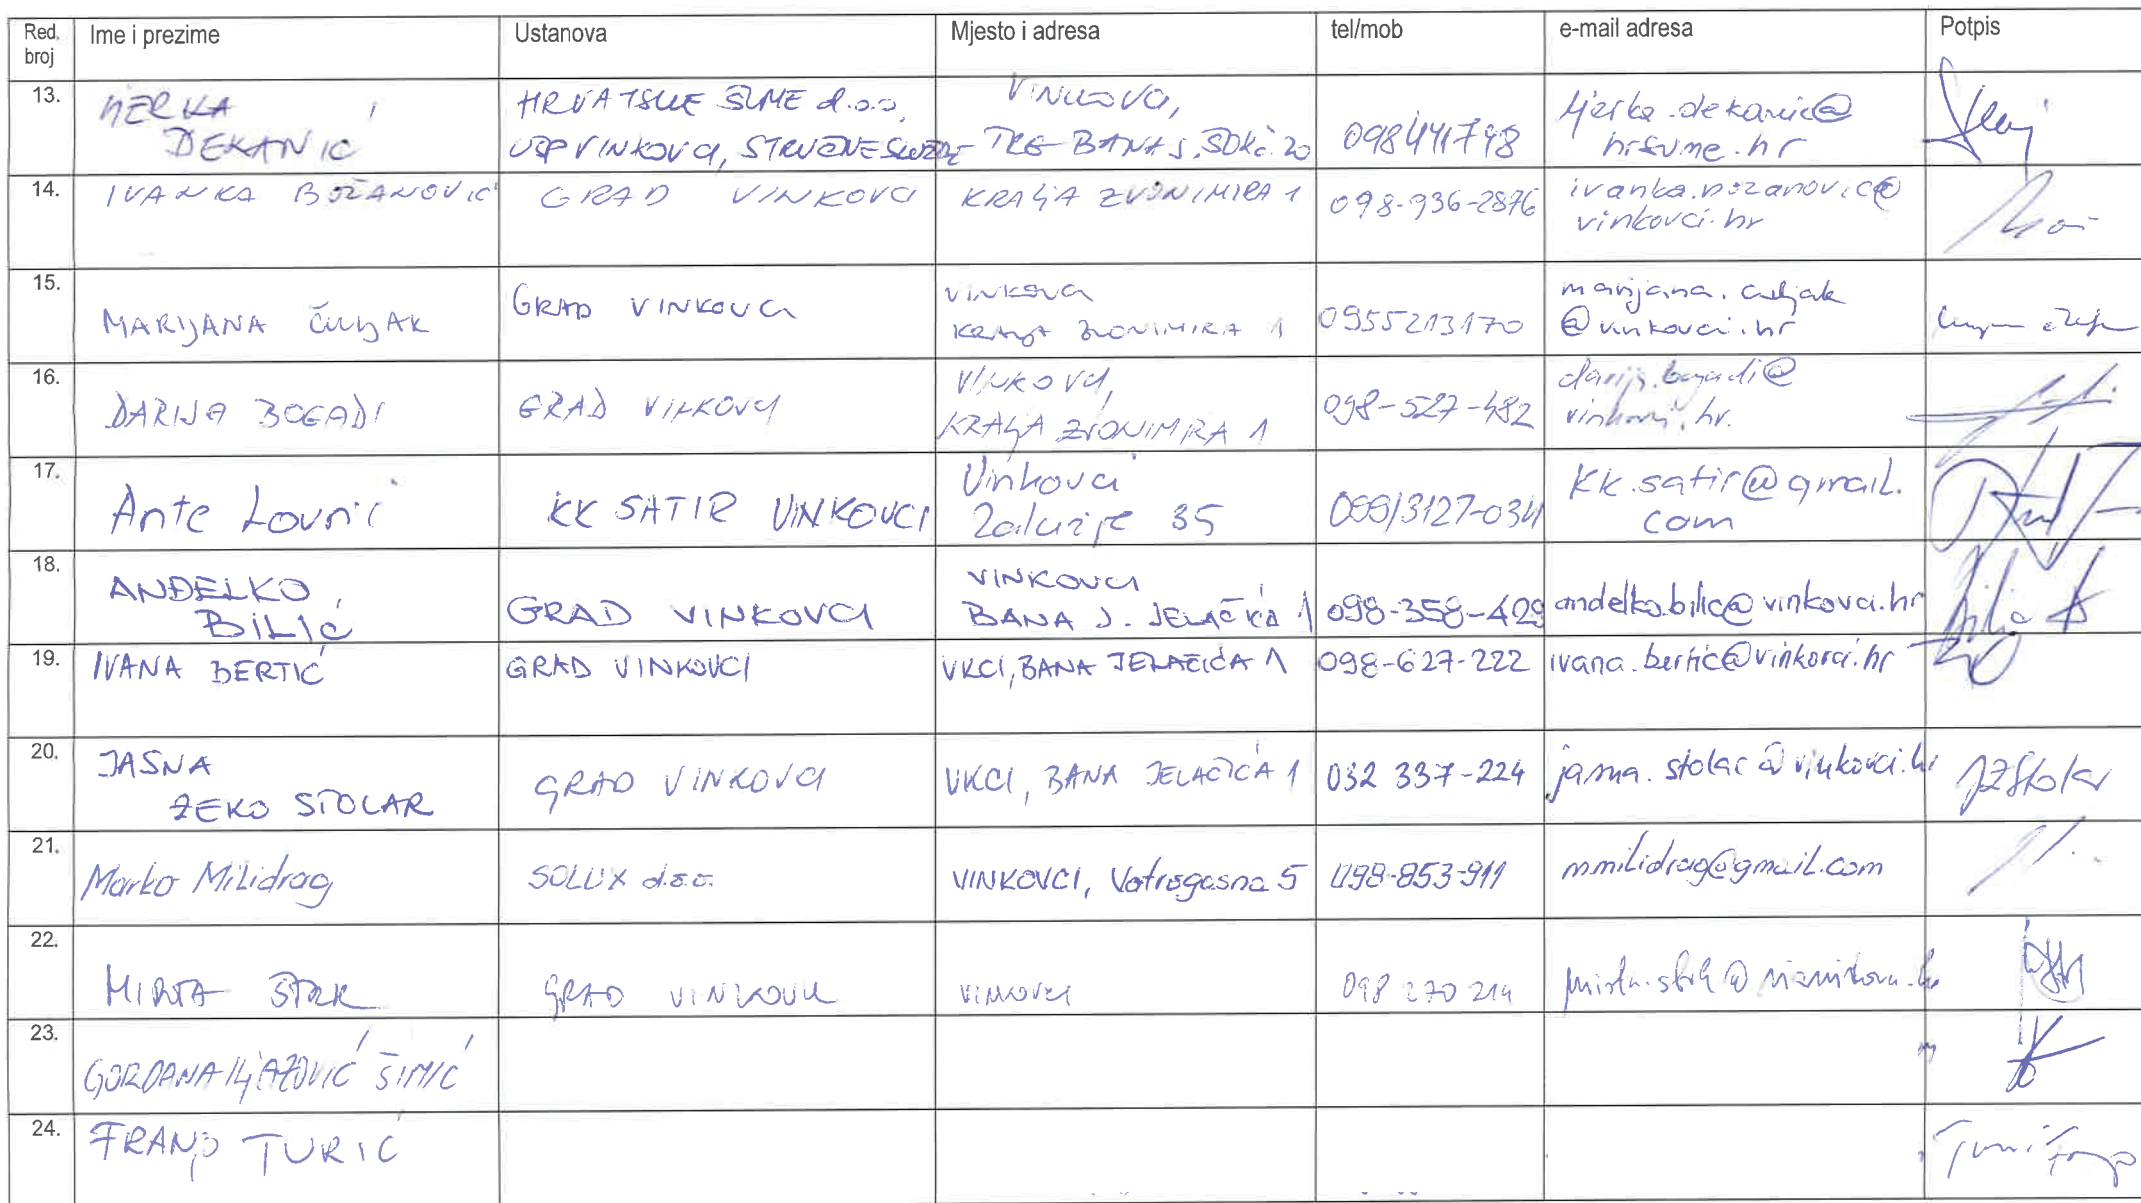 Red. broj Ime i prezime Ustanova Mjesto i adresa tel/mob e-mail adresa Potpis
13. DEKANIĆ HRVATSKE ŠUME d.o.o. VINKOVCI, ljerka.dekanic@
UŠP VINKOVCI, STRUČNE SLUŽBE TRG BANA J. ŠOKČ. 20 098441748 hrsume.hr
14. IVANKA BOŽANOVIĆ GRAD VINKOVCI KRALJA ZVONIMIRA 1 098-936-2876 ivanka.bozanovic@
vinkovci.hr
15. MARIJANA ČULJAK GRAD VINKOVCI VINKOVCI marijana.culjak
KRALJA ZVONIMIRA 1 0955213170 @vinkovci.hr
16. DARIJA BOGADI GRAD VINKOVCI VINKOVCI, darija.bogadi@
KRALJA ZVONIMIRA 1 098-527-482 vinkovci.hr.
17. Ante Lovrić KK SATIR VINKOVCI Vinkovci kk.satir@gmail.
Zalužje 35 com
18. ANĐELKO VINKOVCI
BILIĆ GRAD VINKOVCI BANA J. JELAČIĆA 1 098-358-409 andelko.bilic@vinkovci.hr
19. IVANA BERTIĆ GRAD VINKOVCI VKCI, BANA JELAČIĆA 1 098-627-222 ivana.bertic@vinkovci.hr
20. JASNA
ZEKO STOLAR GRAD VINKOVCI VKCI, BANA JELAČIĆA 1 032 337-224 jasna.stolar@vinkovci.hr JZStolar
21. Marko Milidrag SOLUX d.o.o. VINKOVCI, Vatrogasna 5 098-853-911 mmilidrag@gmail.com
22. MIRTA ŠTRK GRAD VINKOVCI VINKOVCI 098 270 214
23. GORDANA ILJAZOVIĆ ŠIMIĆ
24. FRANJO TURIĆ